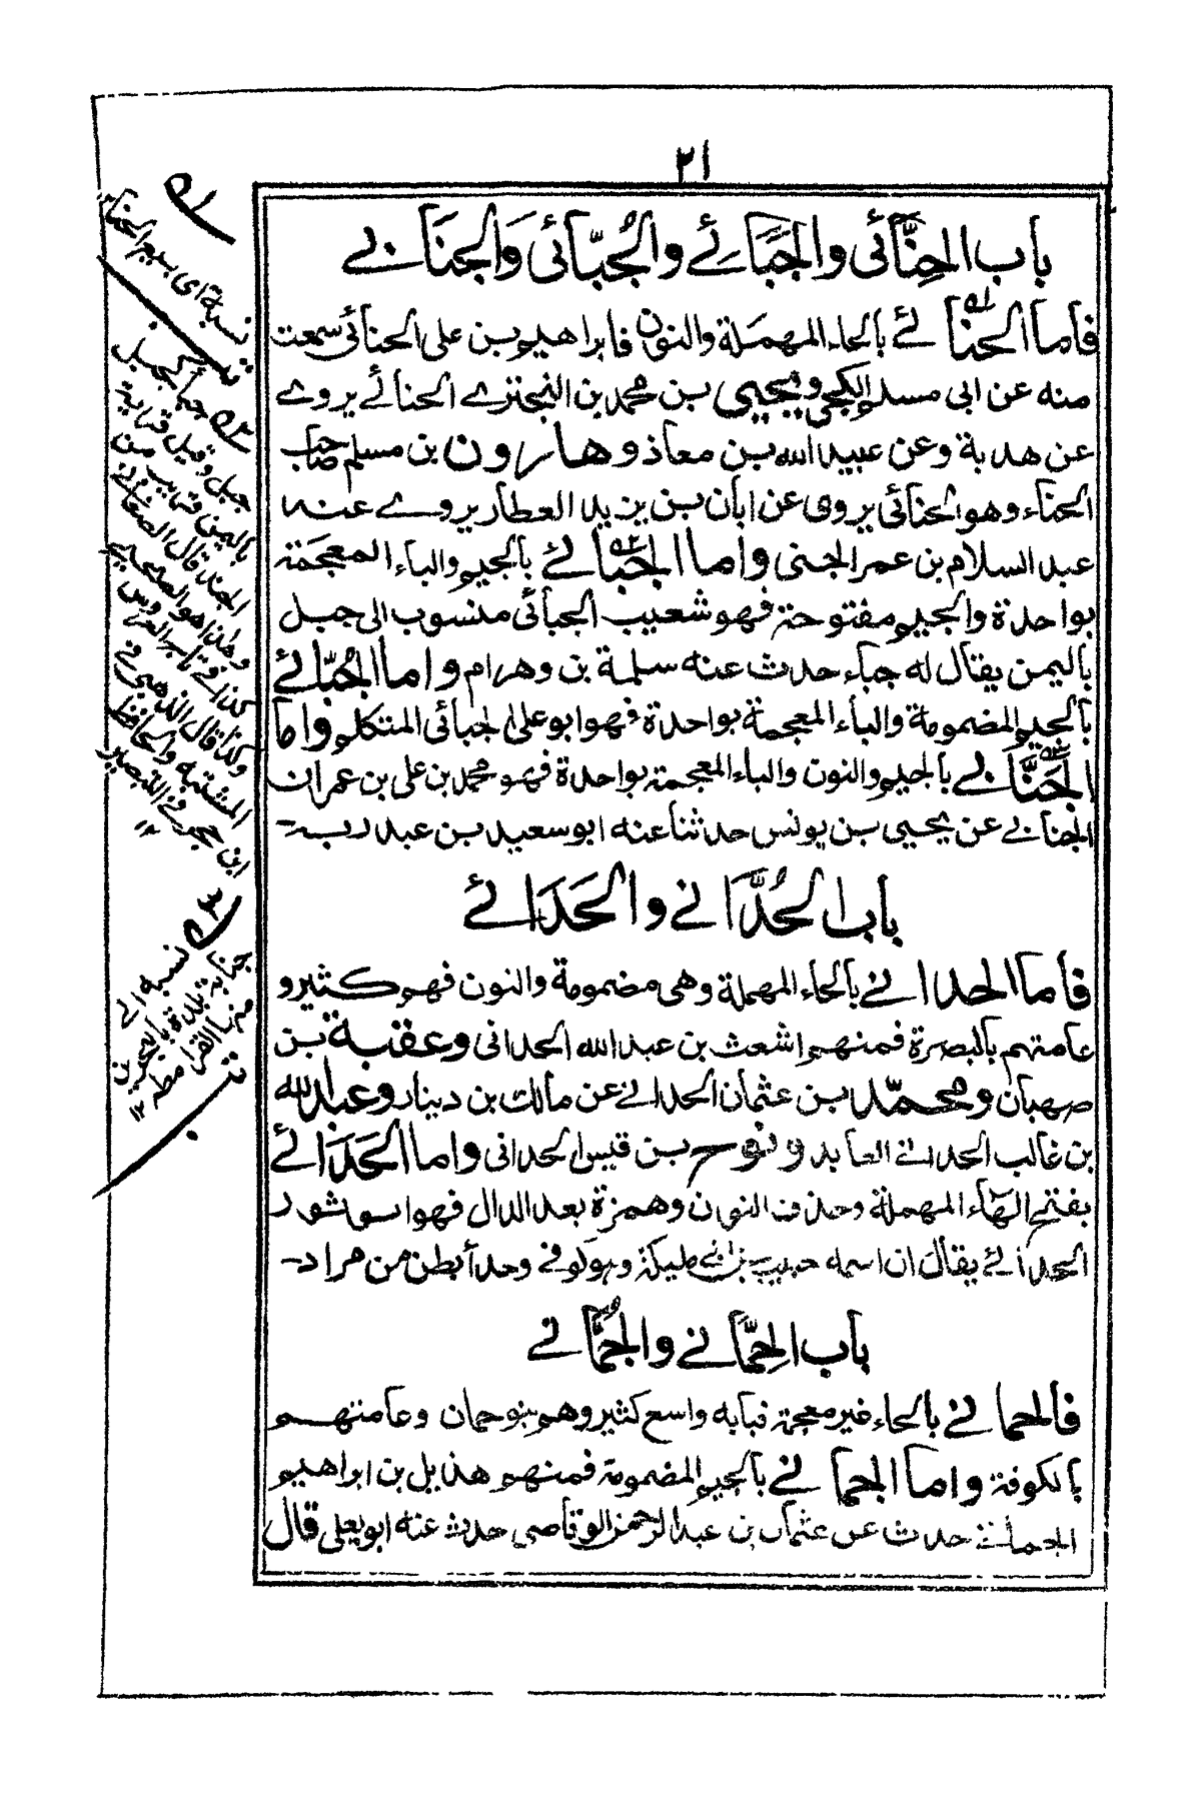 ٢١
باب الحِنَّائي والجَبَائے والجُبّائي وَالجنَابے
فاما الحنائے بالحاء المهملة والنون فابراهيم بن على الحنائي سمعت
منه عن ابى مسلم الكجي ويحيى بن محمد بن البختري الحنائے يروے
عن هدبة وعن عبيد الله بن معاذ وهارون بن مسلم صاحب
الحناء وهو الحنائي يروى عن ابان بن يزيد العطار يروے عنه
عبد السلام بن عمر الجنى واما الجَبَائے بالجيم والباء المعجمة
بواحدة والجيم مفتوحة فهو شعيب الجبائي منسوب الى جبل
باليمن يقال له جباء حدث عنه سلمة بن وهرام واما الجُبّائے
بالجيم المضمومة والباء المعجمة بواحدة فهو ابو على الجبائي المتكلم واما
الجَنَّابے بالجيم والنون والباء المعجمة بواحدة فهو محمد بن على بن عمران
الجنابے عن يحيى بن يونس حدثنا عنه ابو سعيد بن عبد ربه-
باب الحُدَّانے والحَدَائے
فاما الحدانے بالحاء المهملة وهى مضمومة والنون فهم كثير و
عامتهم بالبصرة فمنهم اشعث بن عبد الله الحدانى وعقبة بن
صهبان ومحمّد بن عثمان الحدانے عن مالك بن دينار وعبد الله
بن غالب الحدانے العابد ونوح بن قيس الحدانى واما الحَدَائے
بفتح الهاء المهملة وحذف النون وهمزة بعد الدال فهو ابو ثور
الحدائے يقال ان اسمه حبيب بن ابى مليكة وهو كوفى وحدأ بطن من مراد-
باب الحِمَّانے والجُمَّانے
فالحمانے بالحاء غير معجمة فبابه واسع كثير وهم بنو حمان وعامتهم
بالكوفة واما الجمانے بالجيم المضمومة فمنهم هذيل بن ابراهيم
الجمانے حدث عن عثمان بن عبد الرحمن الوقاصى حدث عنه ابو يعلى قال
ل١
نسبة اى بيع الحناء
ل٢ جبأ كجبل
جبل وقيل قرية
باليمن قريب من
الجند قال الصغانى
وهذا هو الصحيح
كذا فى تاج العروس
وكذا قال الذهبى فى
المشتبه والحافظ
ابن حجر فى التبصير
١٢
ل٣
نسبة الى
جنابة بلدة بالبحرين
منها القرامطة
١٢